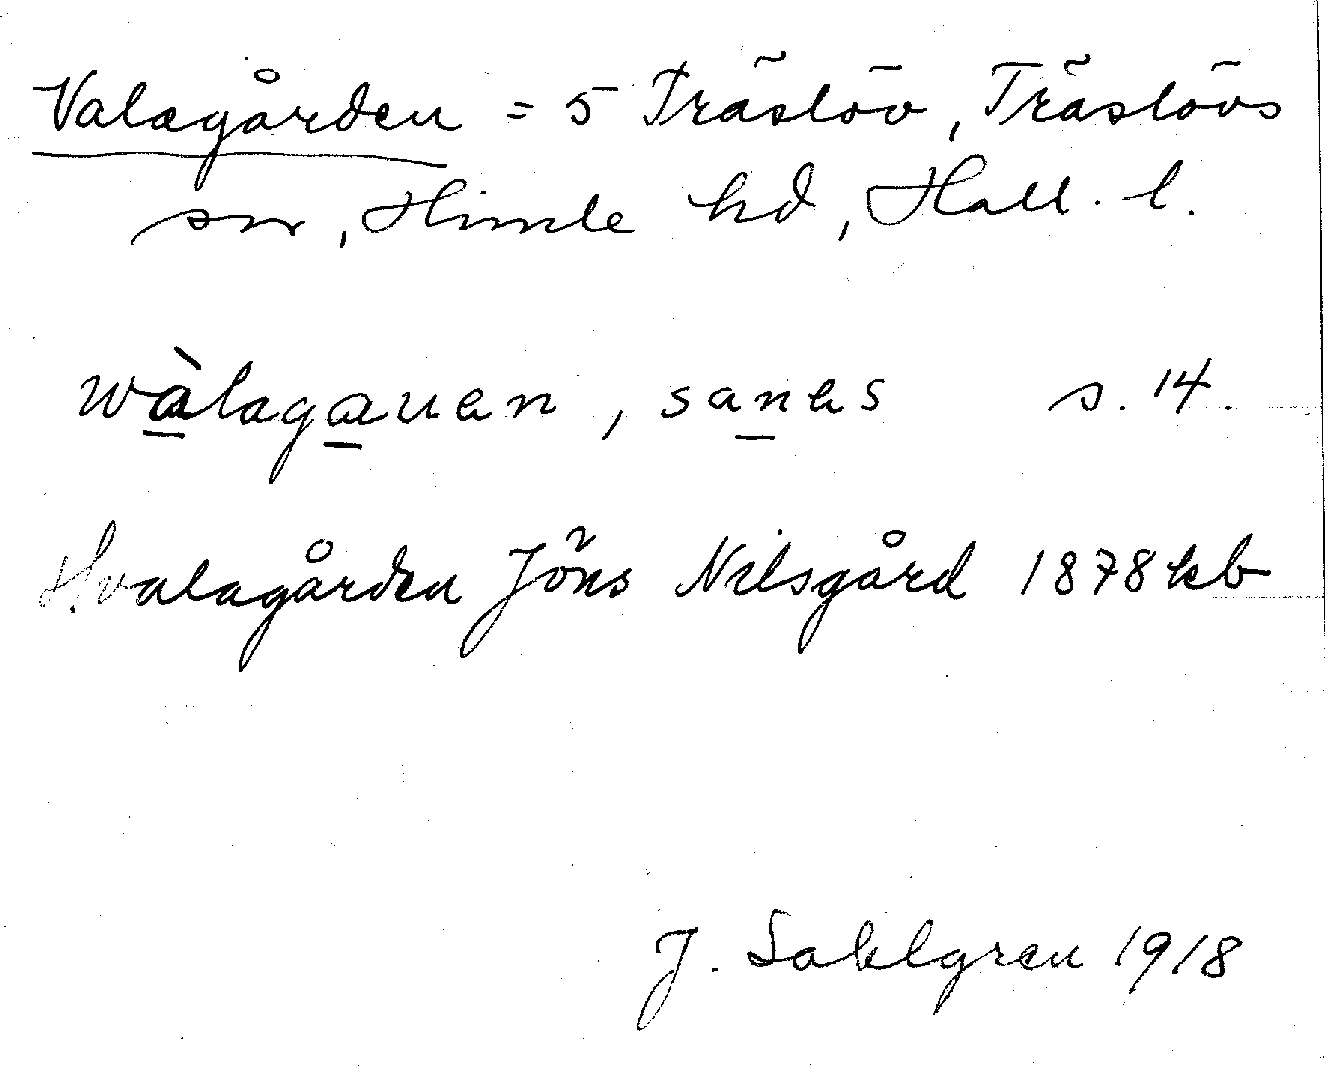 Valagården = 5 Träslöv, Träslövs
sn, Himle hd, Hall. l.
wàlagauen, sanes s. 14.
Hvalagården Jöns Nilsgård 1878 kb
J. Sahlgren 1918